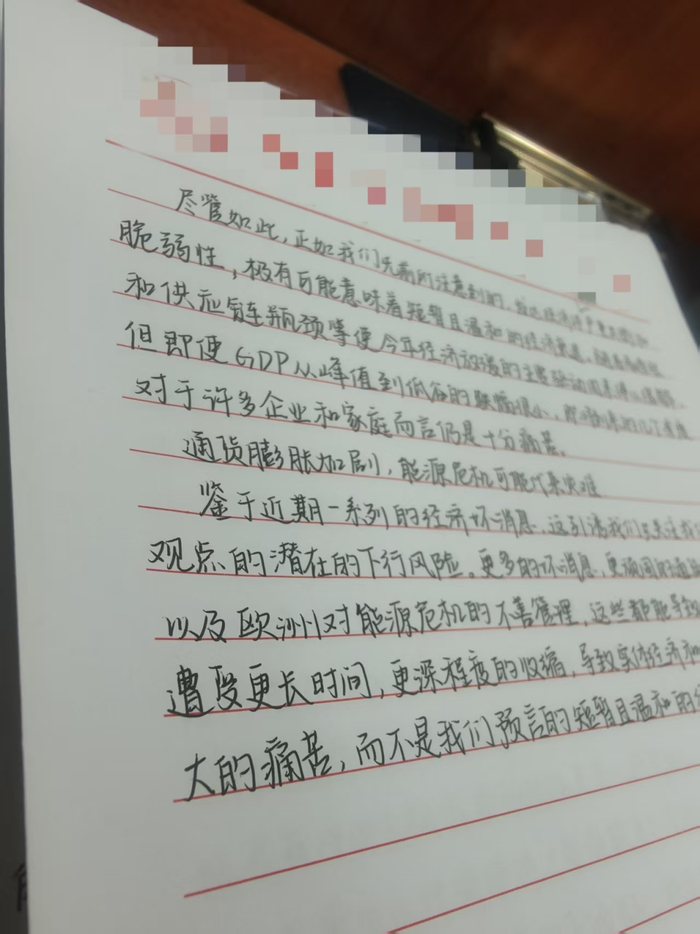 尽管如此,正如我们先前所注意到的,
脆弱性,极有可能意味着短暂且温和的经济衰退,
和供应链瓶颈等使今年经济放缓的主要驱动因素得以缓解
但即使GDP从峰值到低谷的跌幅很小,即将到来的几个季度
对于许多企业和家庭而言仍是十分痛苦。
通货膨胀加剧,能源危机可能带来灾难
鉴于近期一系列的经济坏消息,这引诱我们关注
观点的潜在的下行风险。更多的坏消息,更顽固的通
以及欧洲对能源危机的不善管理,这些都能导致
遭受更长时间,更深程度的收缩,导致实体经济和
大的痛苦,而不是我们预言的短暂且温和的